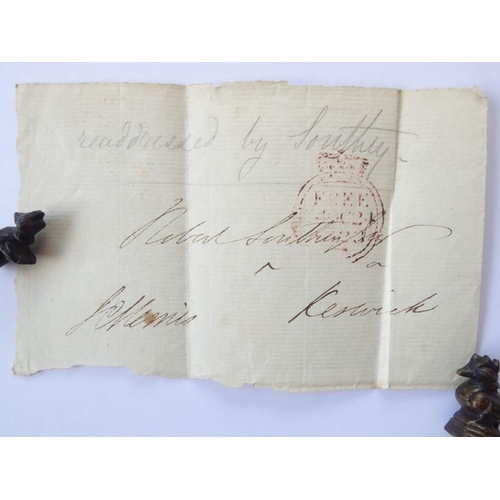 readdressed by Southey
FREE
Robert Southey
Keswick